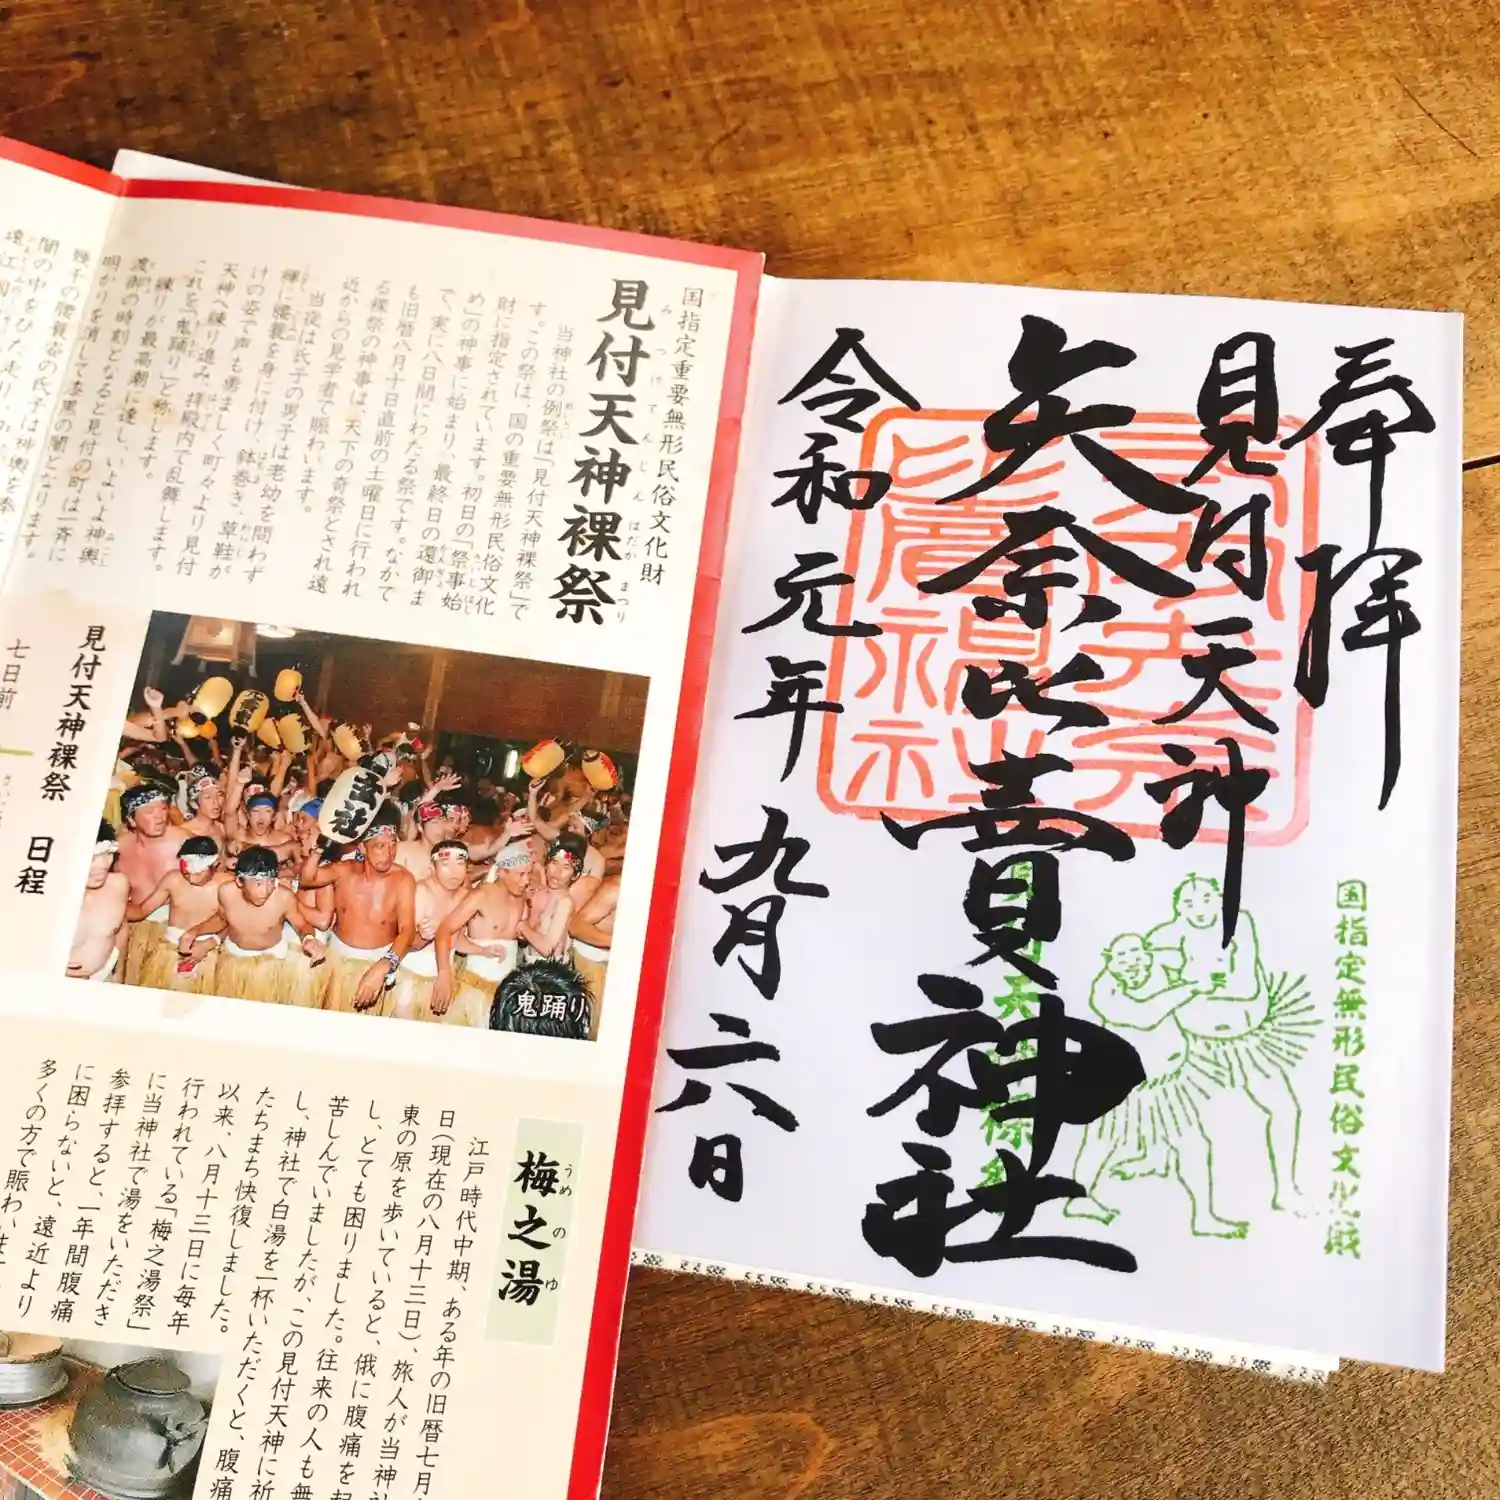 国指定重要無形民俗文化財
見付天神裸祭
みつけてんじんはだかまつり
当神社の例祭は「見付天神裸祭」で
す。この祭は、国の重要無形民俗文化
財に指定されています。初日の「祭事始
め」の神事に始まり、最終日の還御ま
で、実に八日間にわたる祭です。なかで
も旧暦八月十日直前の土曜日に行われ
る裸祭の神事は、天下の奇祭とされ遠
近からの見学者で賑わいます。
当夜は氏子の男子は老幼を問わず
褌に腰蓑を身に付け、鉢巻き、草鞋が
けの姿で声も勇ましく町々より見付
天神へ練り進み、拝殿内で乱舞します。
これを「鬼踊り」と称します。
練りが最高潮に達し、いよいよ神輿
渡御の時刻となると見付の町は一斉に
明かりを消して漆黒の闇となります。
幾千の腰蓑姿の氏子は神輿を奉
闇の中をひた走り
玄社
鬼踊り
見付天神裸祭 日程
七日前
梅之湯
うめのゆ
江戸時代中期、ある年の旧暦七月
日(現在の八月十三日)、旅人が当神社
東の原を歩いていると、俄に腹痛を起
し、とても困りました。往来の人も無
苦しんでいましたが、この見付天神に祈
し、神社で白湯を一杯いただくと、腹痛
たちまち快復しました。
以来、八月十三日に毎年
行われている「梅之湯祭」
に当神社で湯をいただき
参拝すると、一年間腹痛
に困らないと、遠近より
多くの方で賑わいます
奉拝
見付天神
矢奈比賣神社
令和元年九月六日
国指定無形民俗文化財